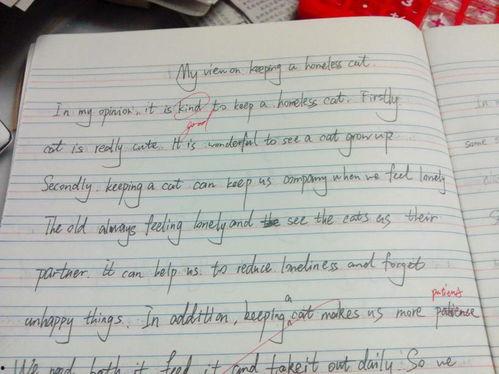 My view on keeping a homeless cat.
In my opinion, it is kind to keep a homeless cat. Firstly
good
cat is really cute. It is wonderful to see a cat grow up.
Secondly. keeping a cat can keep us company when we feel lonely
The old always feeling lonely and see the cats as their
partner. it can help us to reduce loneliness and forget
patient
a
unhappy things. In addition, keeping cat makes us more patience
We need both it feed it and take it out daily. So we
In
same